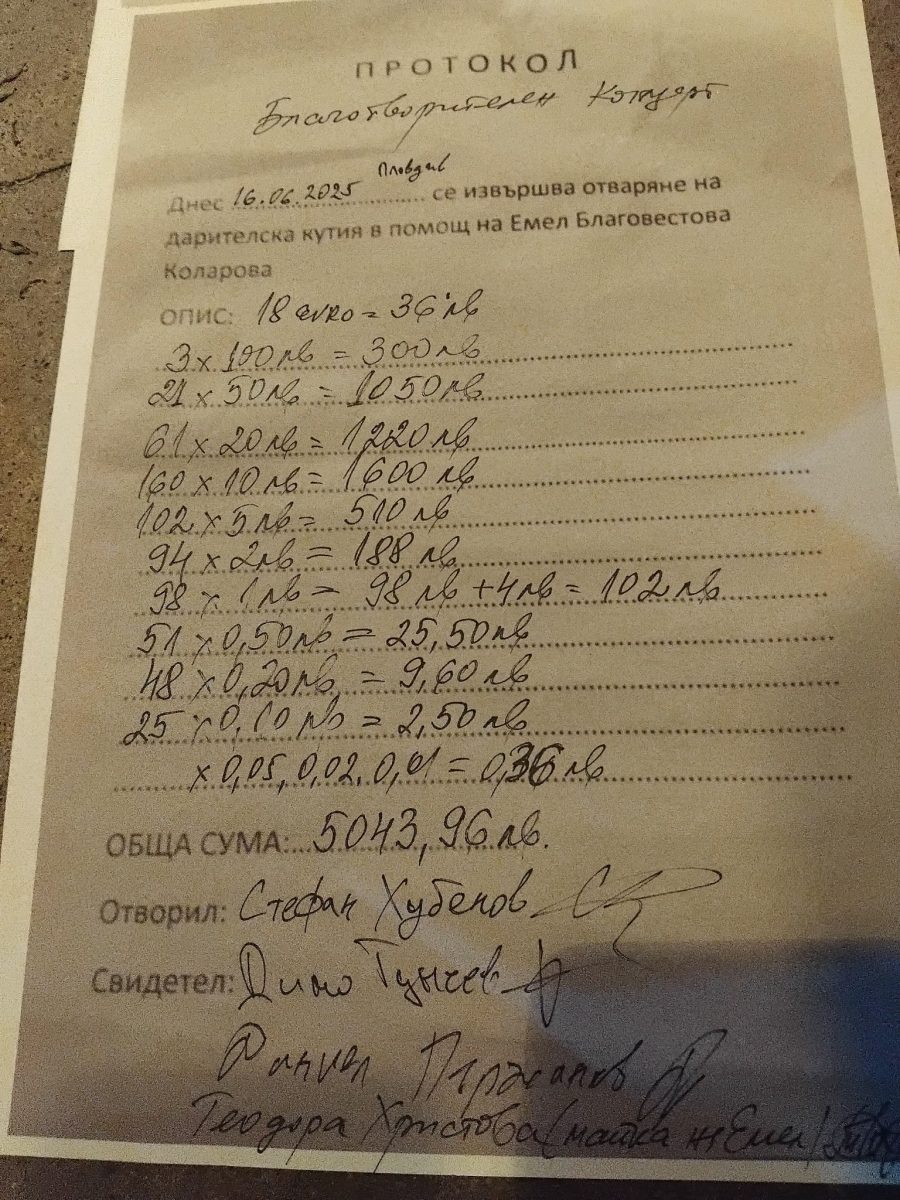 ПРОТОКОЛ
Благотворителен концерт
Пловдив
Днес 16.06.2025 се извършва отваряне на
дарителска кутия в помощ на Емел Благовестова
Коларова
ОПИС: 18 euro = 36 лв
3 x 100 лв = 300 лв
21 x 50 лв = 1050 лв
61 x 20 лв = 1220 лв
160 x 10 лв = 1600 лв
102 x 5 лв = 510 лв
94 x 2 лв = 188 лв
98 x 1 лв = 98 лв + 4 лв = 102 лв
51 x 0,50 лв = 25,50 лв
48 x 0,20 лв = 9,60 лв
25 x 0,10 лв = 2,50 лв
x 0,05, 0,02, 0,01 = 0,36 лв
ОБЩА СУМА: 5043,96 лв.
Отворил: Стефан Хубенов
Свидетел: Димо Гунчев
Теодора Христова (майка на Емел)